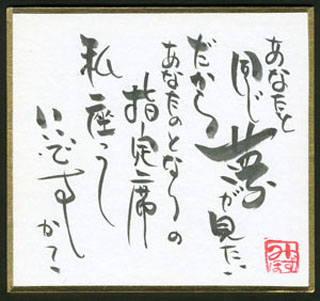 あなたと
同じ夢が見たい
だから
あなたのとなりの
指定席
私座って
いいですかて